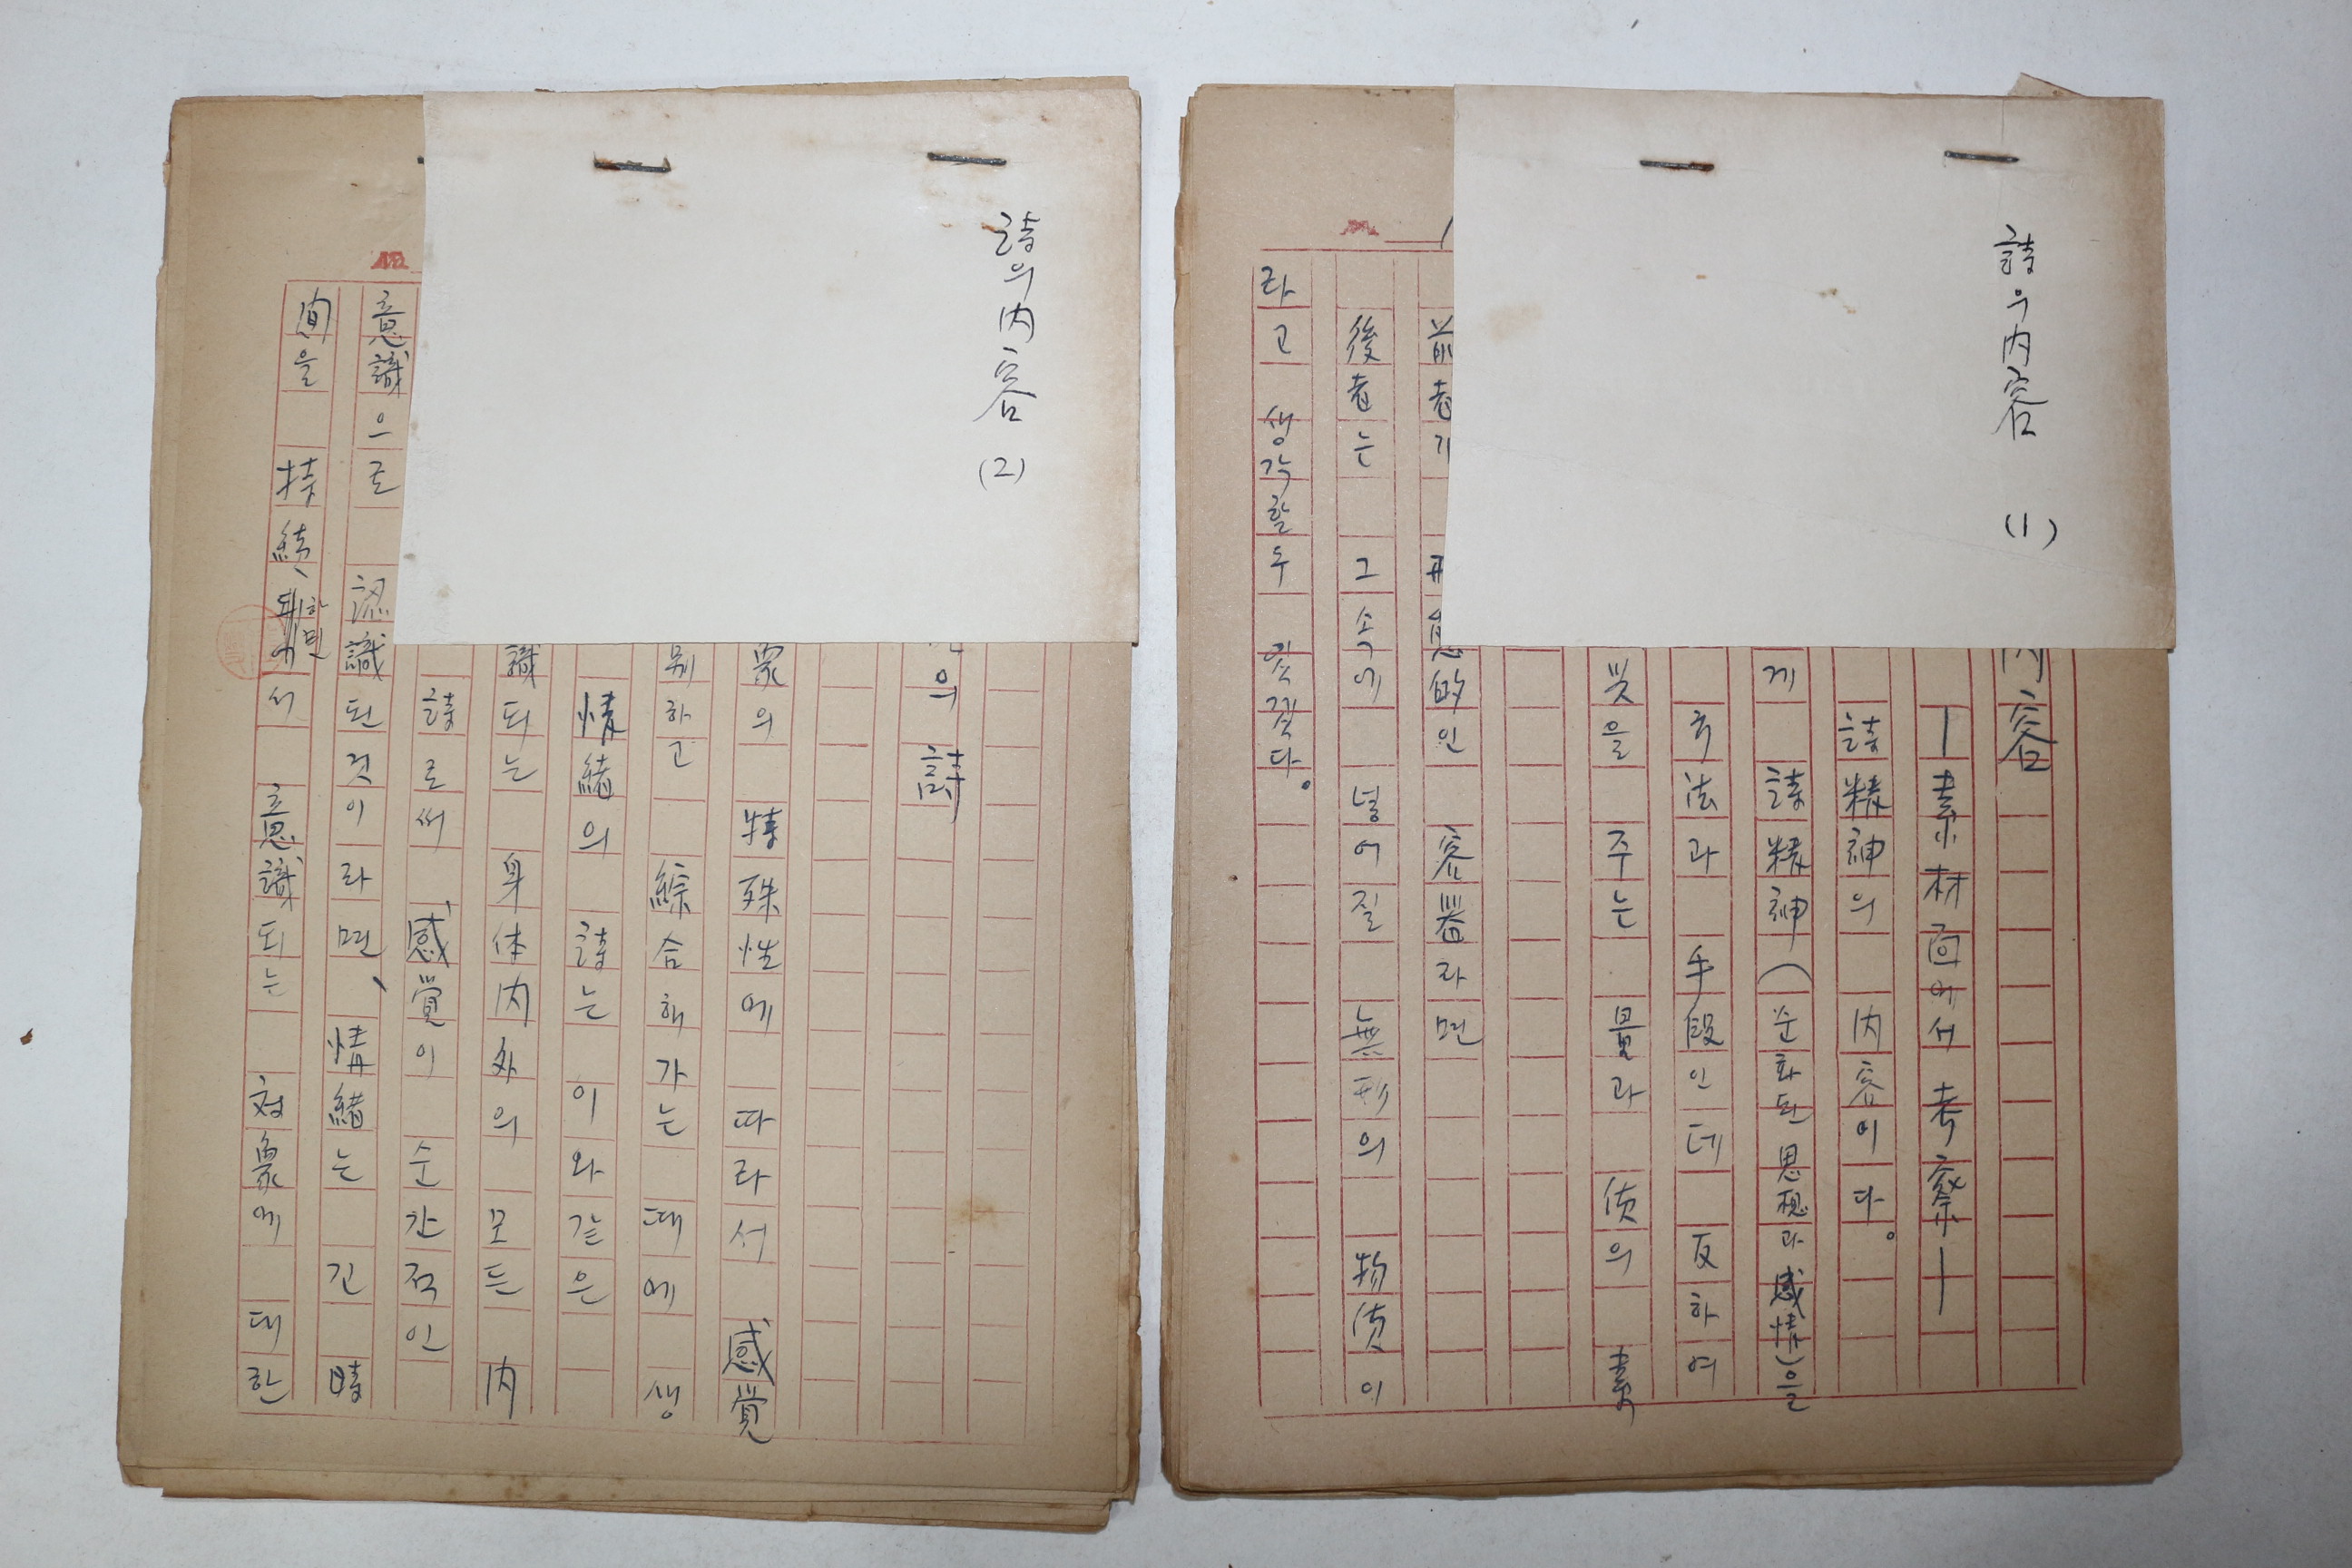 詩의内容 (1)
内容
―素材面에서 考察―
詩精神의 内容이다。
게 詩精神(순화된 思想과 感情)을
方法과 手段인데 反하여
주는 量과 质의 素
前者가 形態的인 容器라면
後者는 그 속에 넣어질 無形의 物质이
라고 생각할 수 있겠다。
詩의内容 (2)
의 詩
象의 特殊性에 따라서 感覚
別하고 綜合해가는 때에 생
情緒의 詩는 이와 같은
識되는 身体内外의 모든 内
詩로써 感覚이 순간적인
意識으로 認識된 것이라면、 情緒는 긴 時
间을 持続、하면서 意識되는 対象에 대한